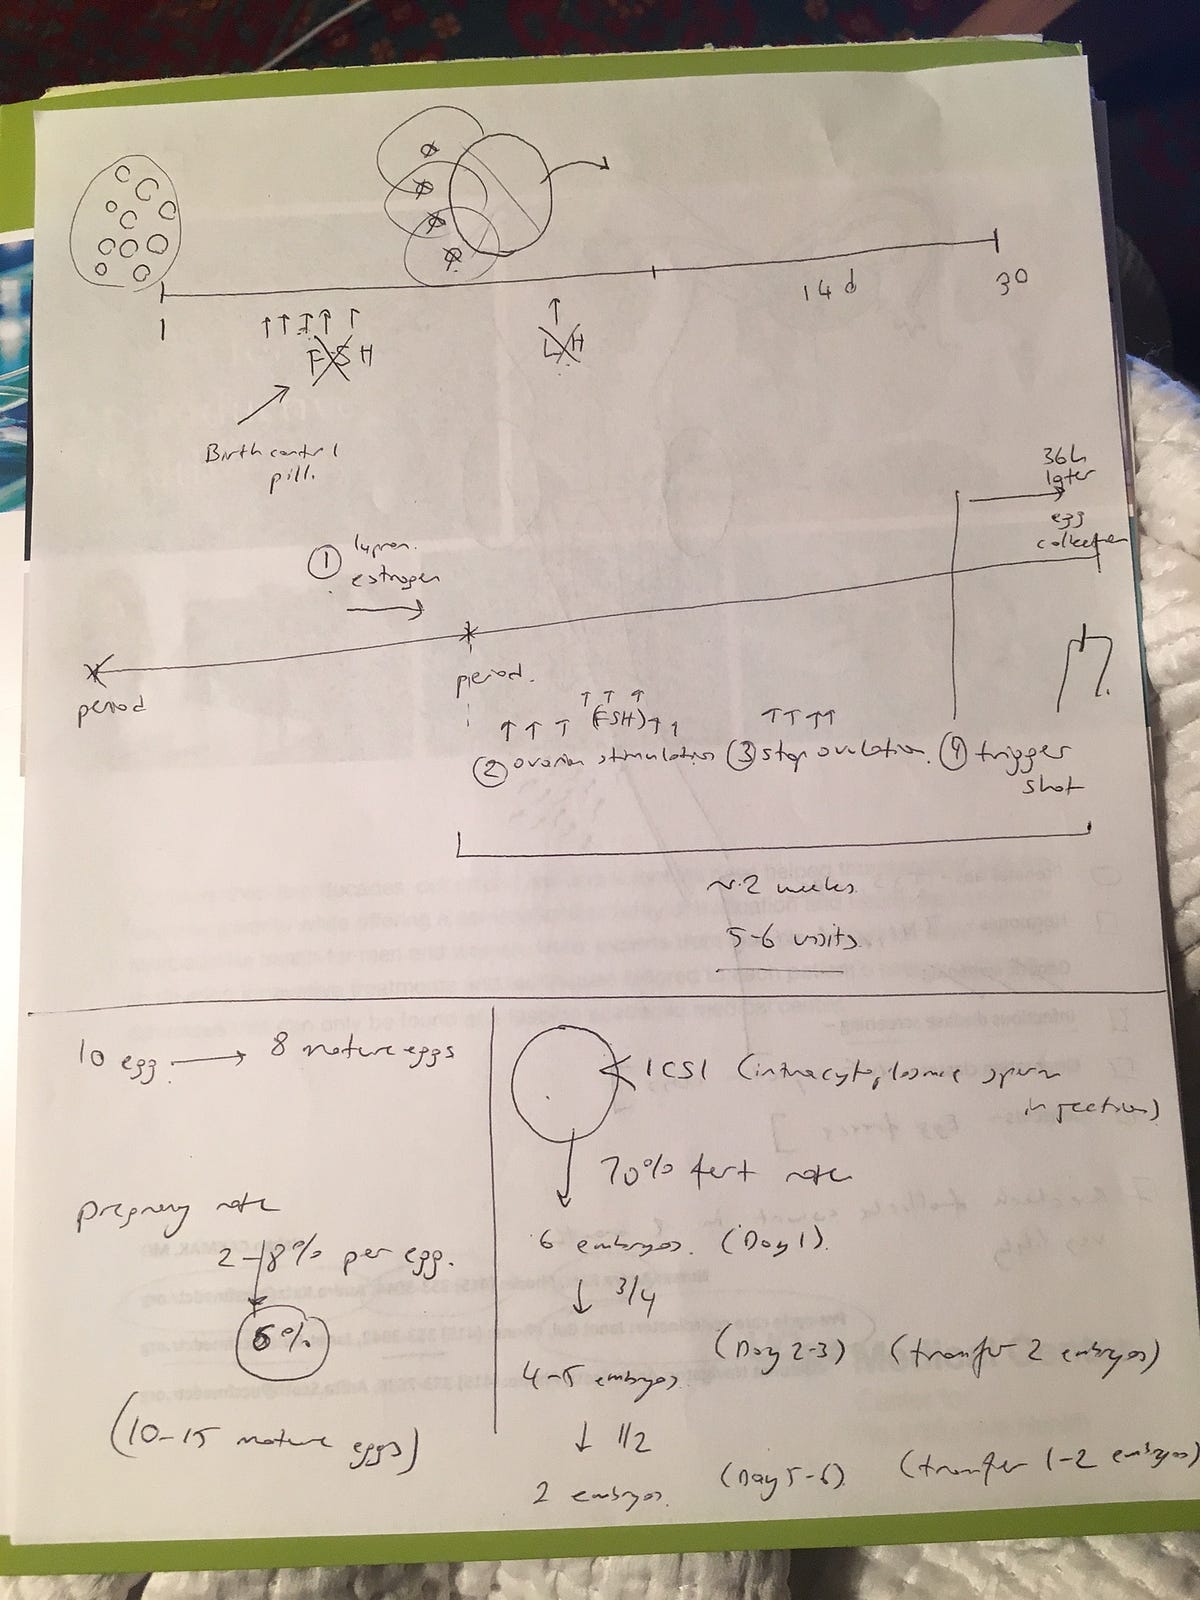 1
14 d
30
FSH
LH
Birth control
pill.
36h
later
egg
collection
① lupron.
estrogen
period
period.
(FSH)
② ovarian stimulation ③ stop ovulation. ④ trigger
shot
~2 weeks.
5-6 visits.
10 egg. → 8 mature eggs
pregnancy rate
2-8% per egg.
6%
(10-15 mature eggs)
ICSI (intracytoplasmic sperm
injection)
70% fert rate
6 embryos. (Day 1).
↓ 3/4
4-5 embryos. (Day 2-3) (transfer 2 embryos)
↓ 1/2
2 embryos. (Day 5-6) (transfer 1-2 embryos)